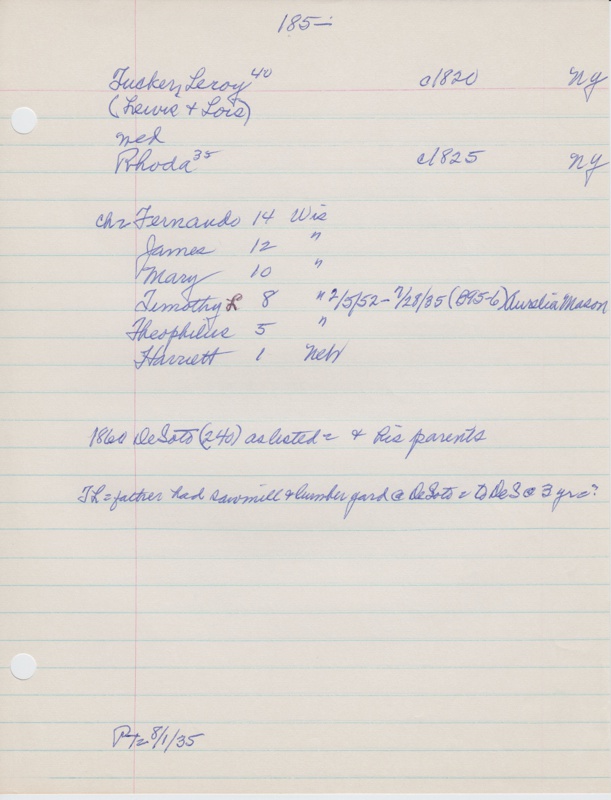 185-
Tucker, Leroy 40 c1820 NY
(Lewis + Lois)
med
Rhoda 35 c1825 NY
ch= Fernando 14 Wis
James 12 "
Mary 10 "
Timothy L 8 " 2/5/52 - 7/28/35 (895-6) Aurelia Mason
Theophilus 5 "
Harriett 1 Neb
1860 DeSoto (240) as listed = + his parents
TL = father had sawmill + lumber yard @ DeSoto = to DeS @ 3 yr = ?
PT= 8/1/35